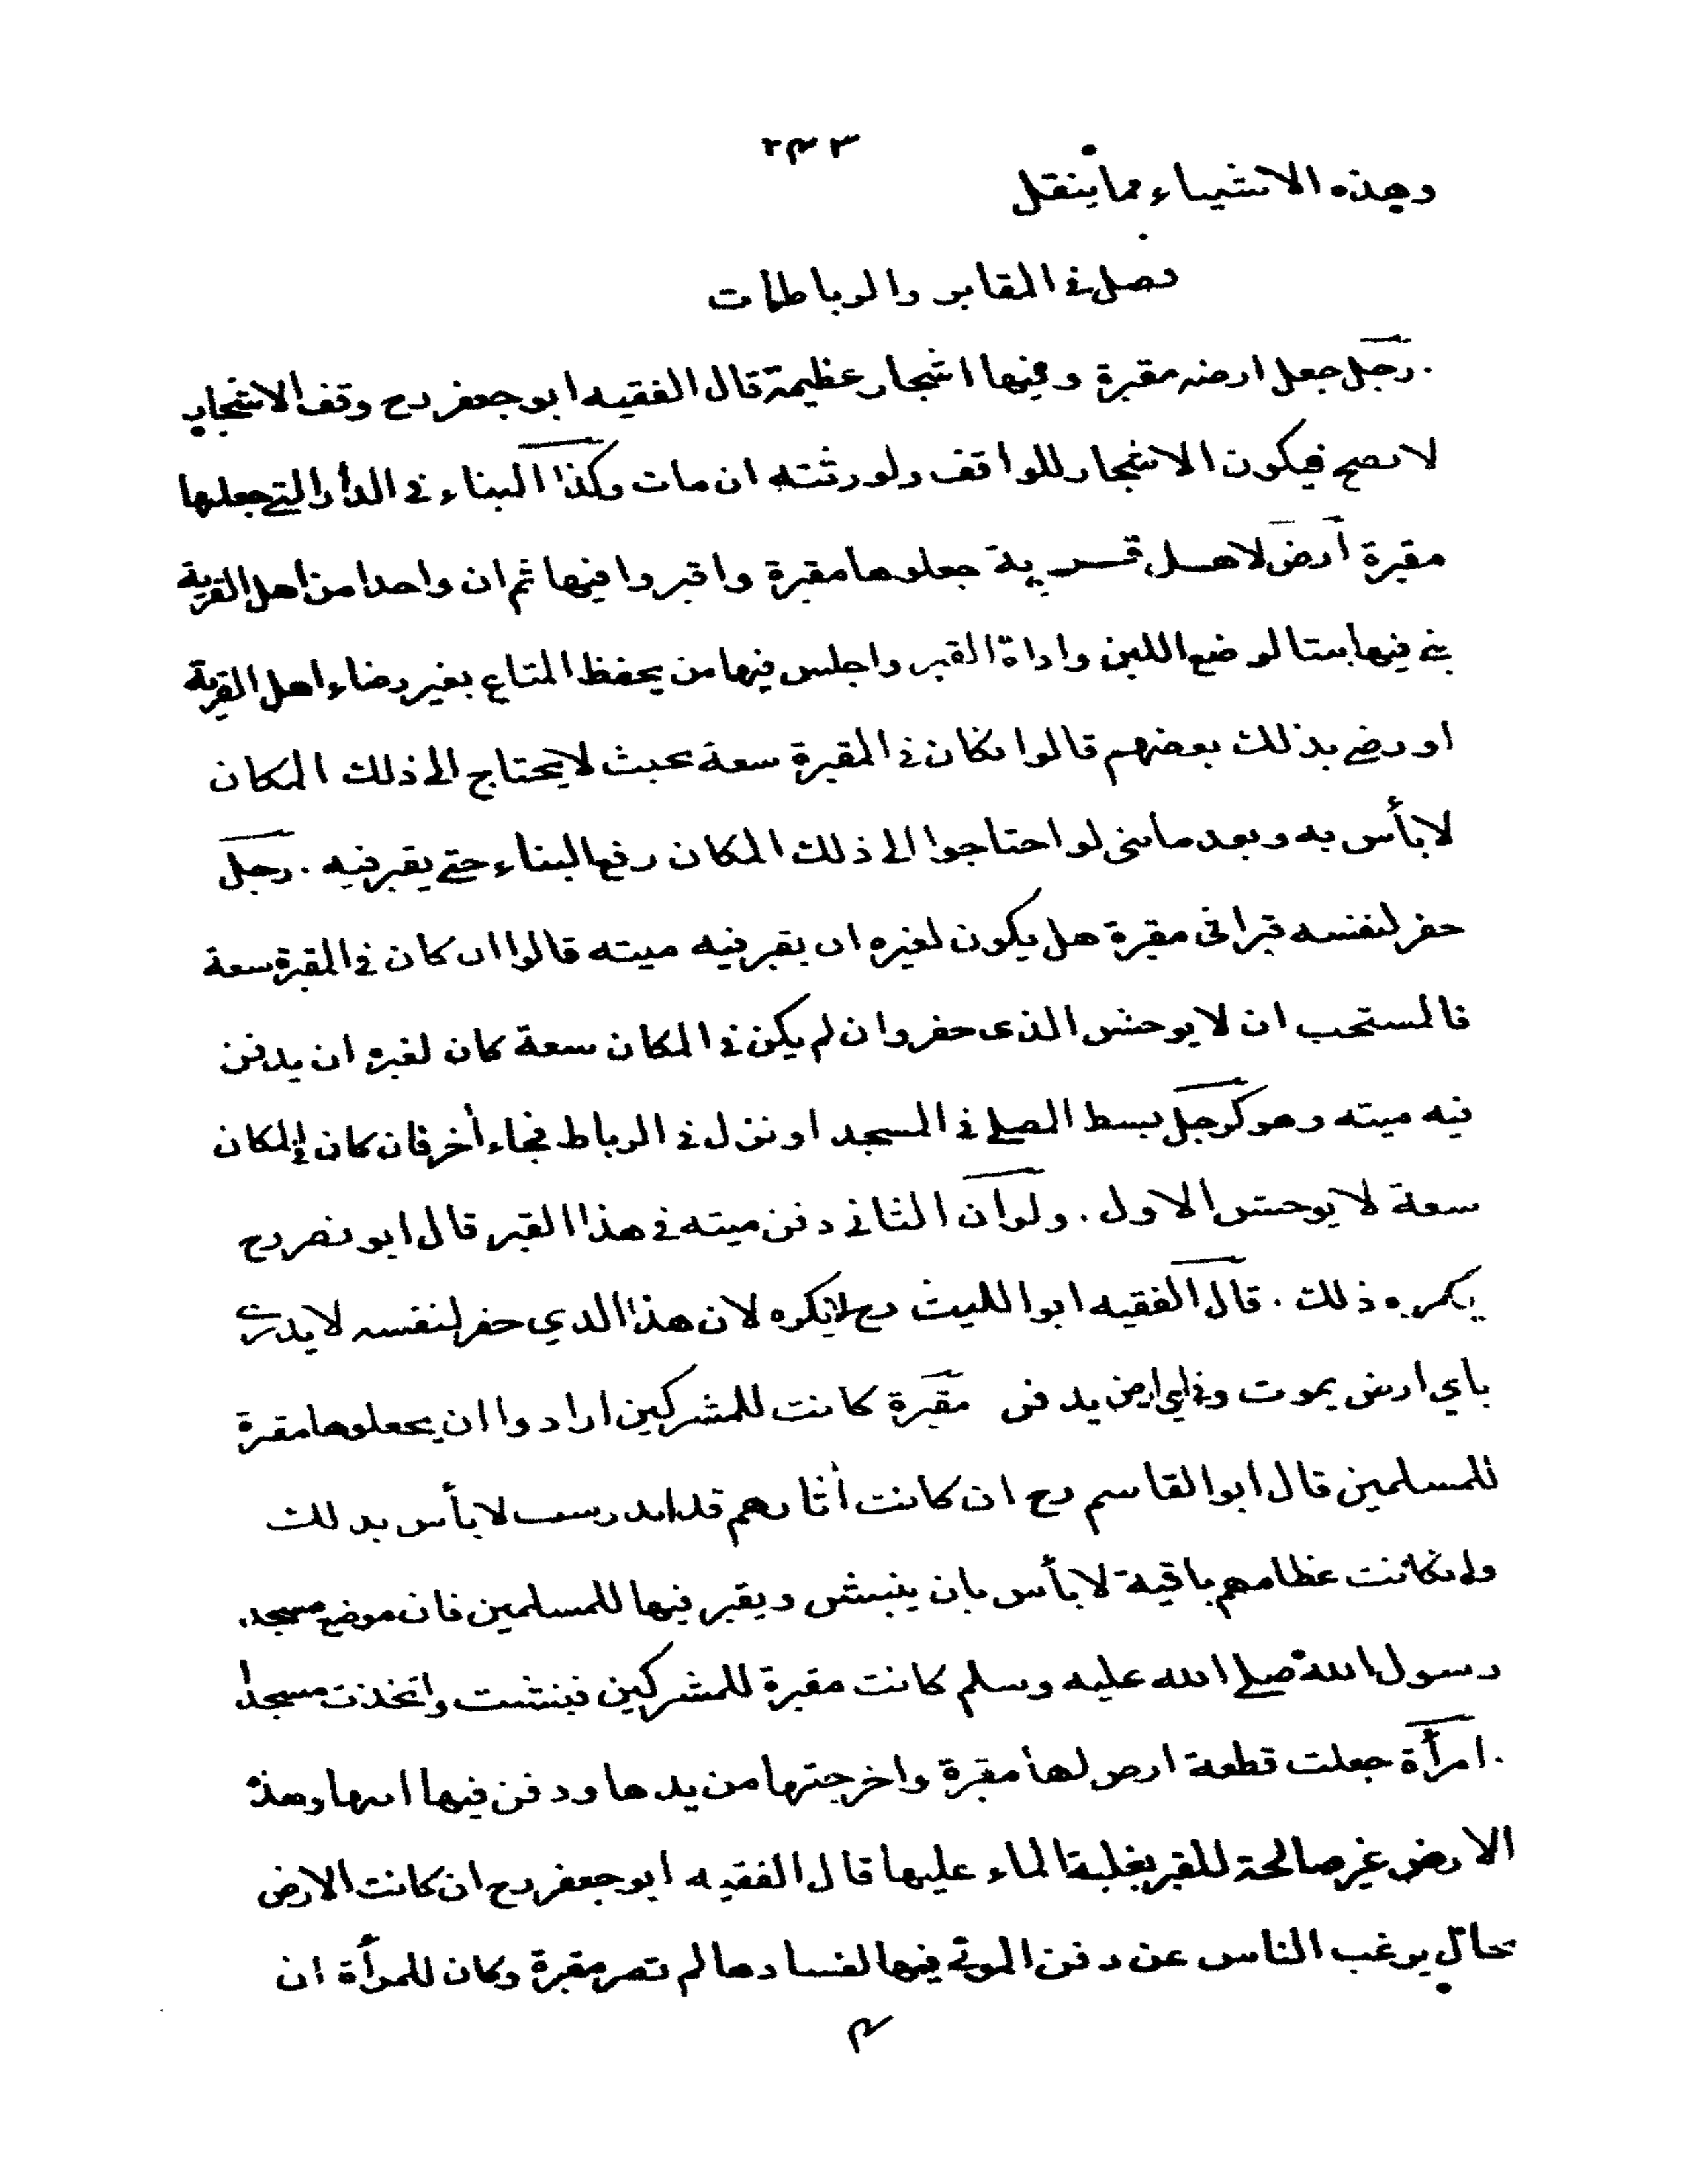 ٢٤٣
وهذه الاشياء مما ينقل
فصل في المقابر والرباطات
. رجل جعل ارضه مقبرة وفيها اشجار عظيمة قال الفقيه ابو جعفر رح وقف الاشجار
لا يصح فيكون الاشجار للواقف ولورثته ان مات وكذا البناء في الدار التي جعلها
مقبرة ارض لاهل قرية جعلوها مقبرة واقبروا فيها ثم ان واحدا من اهل القرية
بنى فيها بيتا لوضع اللبن واداة القبر واجلس فيها من يحفظ المتاع بغير رضاء اهل القرية
او رضي بذلك بعضهم قالوا انكان في المقبرة سعة بحيث لا يحتاج الى ذلك المكان
لا بأس به وبعد ما بنى لو احتاجوا الى ذلك المكان رفع البناء حتى يقبر فيه . رجل
حفر لنفسه قبرا في مقبرة هل يكون لغيره ان يقبر فيه ميته قالوا ان كان في المقبرة سعة
فالمستحب ان لا يوحش الذي حفر وان لم يكن في المكان سعة كان لغيره ان يدفن
فيه ميته وهو كرجل بسط المصلى في المسجد او نزل في الرباط فجاء أخر فان كان في المكان
سعة لا يوحش الاول . ولو ان الثاني دفن ميته في هذا القبر قال ابو نصر رح
يكره ذلك . قال الفقيه ابوا الليث رح لا يكره لان هذا الذي حفر لنفسه لا يدري
باي ارض يموت وفي اي ارض يدفن مقبرة كانت للمشركين ارادوا ان يجعلوها مقبرة
للمسلمين قال ابوا القاسم رح ان كانت أثارهم قد اندرست لا بأس بذلك
وان كانت عظامهم باقية لا بأس بان ينبش ويقبر فيها للمسلمين فان موضع مسجد
رسول الله صلى الله عليه وسلم كانت مقبرة للمشركين فنبشت واتخذت مسجدا
. امرأة جعلت قطعة ارض لها مقبرة واخرجتها من يدها ودفن فيها ابنها وهذه
الارض غير صالحة للقبر بغلبة الماء عليها قال الفقيه ابو جعفر رح ان كانت الارض
بحال يرغب الناس عن دفن الموتى فيها لفسادها لم تصر مقبرة وكان للمرأة ان